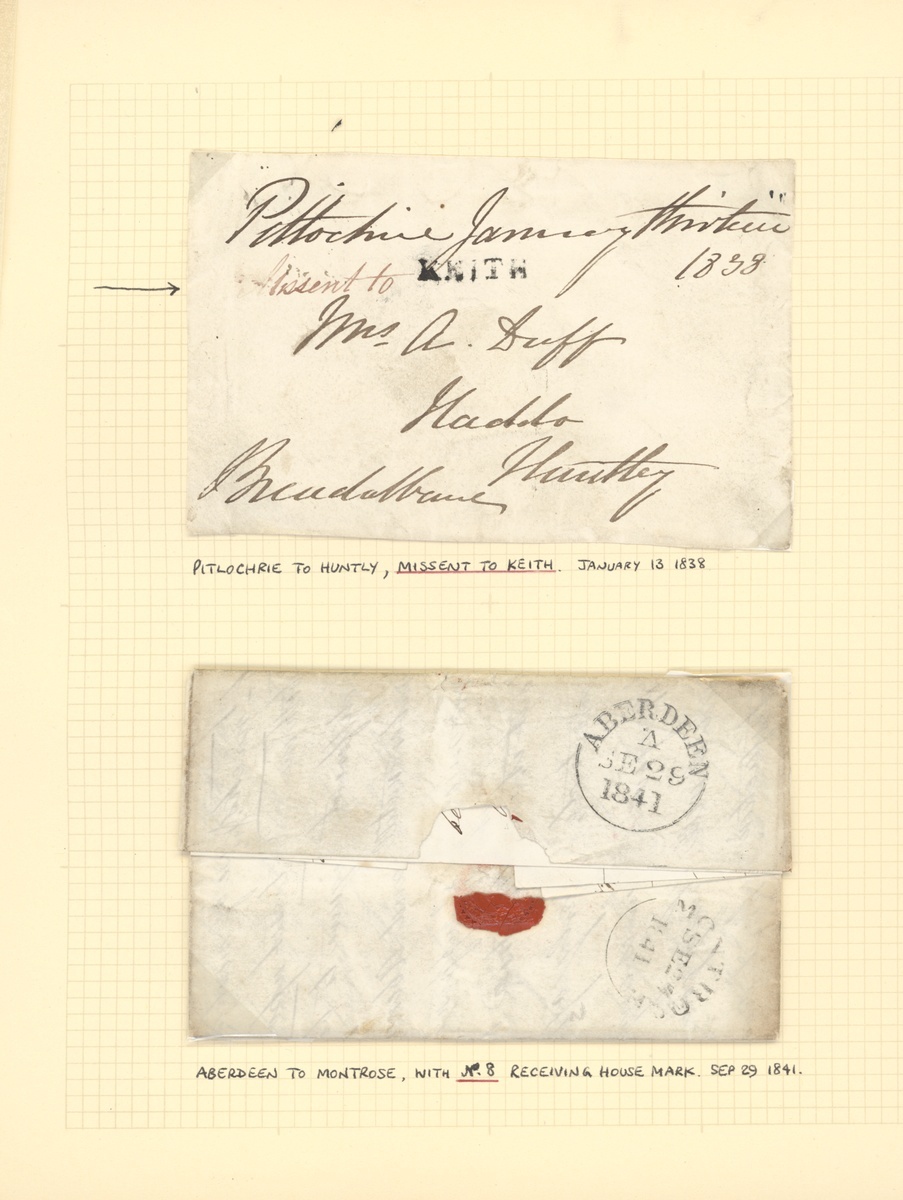 Pittochrie January thirteen
1838
Missent to KEITH
Mrs. A. Duff
Haddo
Huntley
Breadalbane
PITLOCHRIE TO HUNTLY, MISSENT TO KEITH. JANUARY 13 1838
ABERDEEN
A
SE 29
1841
MONTROSE
SE
1841
ABERDEEN TO MONTROSE, WITH No. 8 RECEIVING HOUSE MARK. SEP 29 1841.